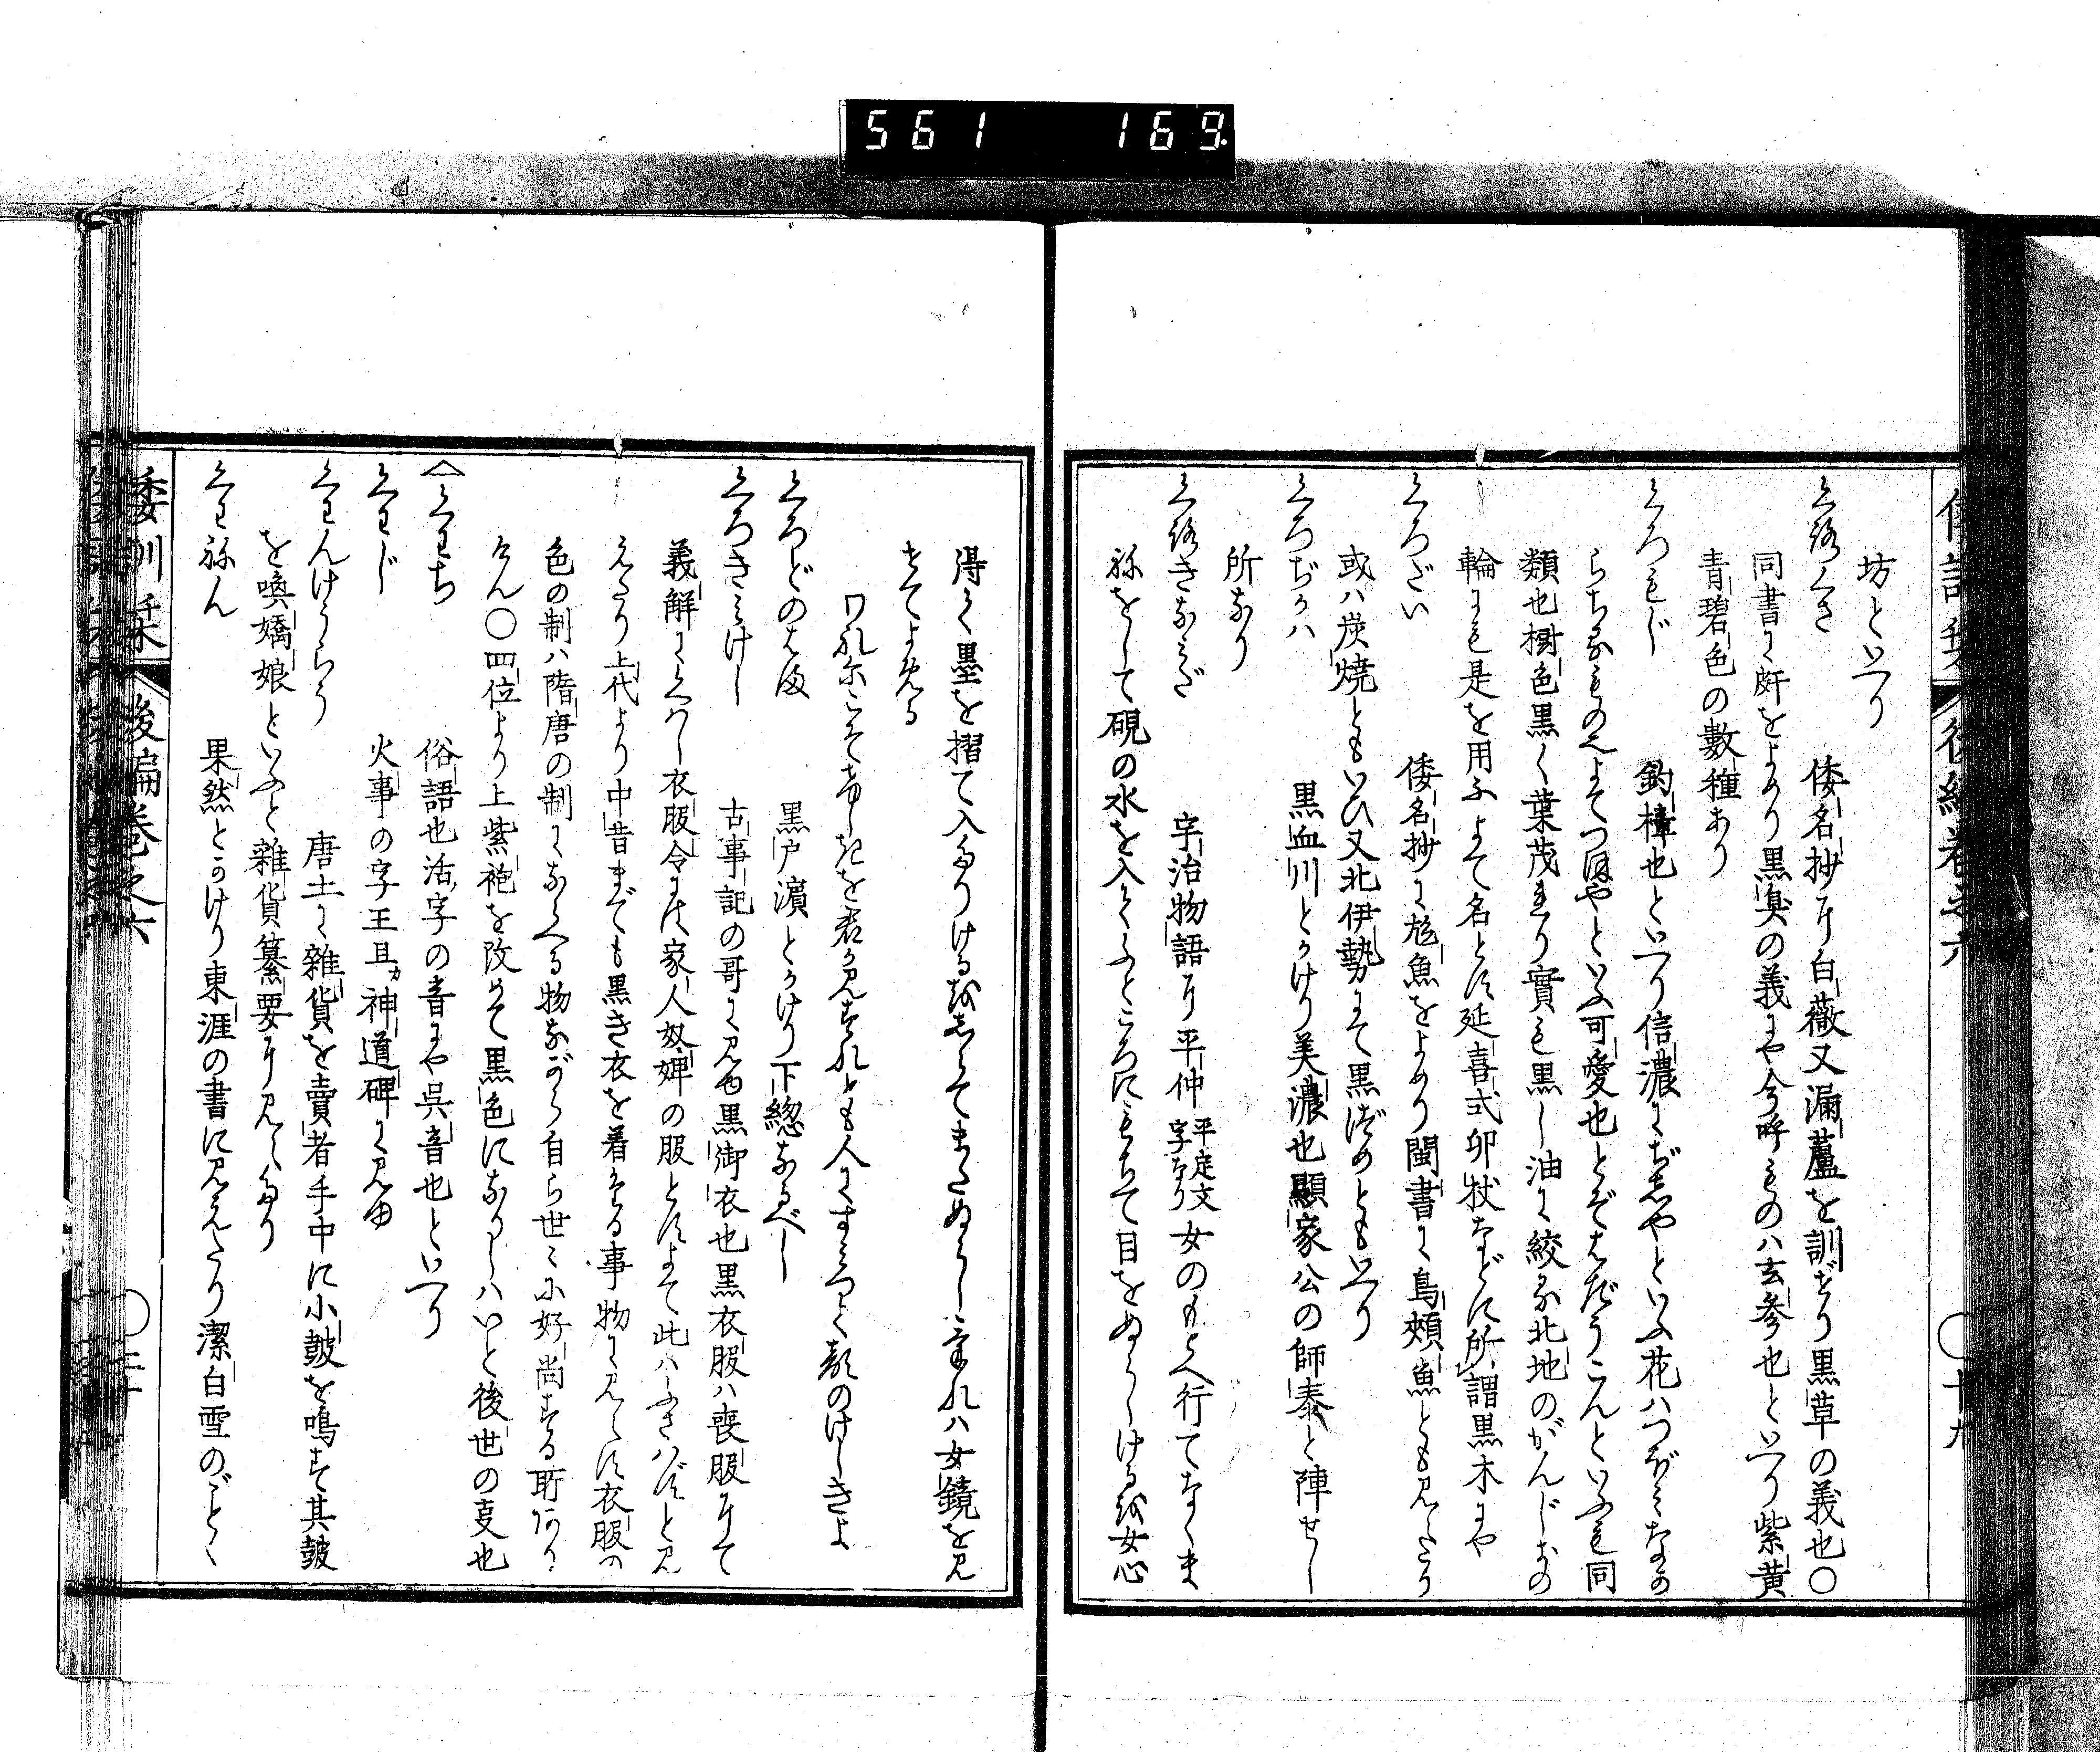 561 169.
後編巻之六 ○十九
坊といへり
くろくさ 倭名抄に白薇又漏蘆を訓ぜり黒草の義也○
同書に䵟をよめり黒臭の義にや今呼ものハ玄参也といへり紫黄
青碧色の數種あり
くろもじ 釣樟也といへり信濃にぢしやといふ花ハつばきなの
類也樹色黒く葉茂れり實も黒し油に絞る北地のがんじきの
輪にも是を用ふよて名とす延喜式卯杖などに所謂黒木にや
くろだい 倭名抄に魚をよめり閩書に烏頰魚とも見えたり
或ハ炭焼ともいひ又北伊勢にて黒づめともいへり
くろぢがハ 黒血川とかけり美濃也顕家公の師泰と陣せし
所なり
くろきなみだ 宇治物語に平仲平定文字なり女のもとへ行てなくま
ねをして硯の水を入てふところにもちて目をぬらしけるを女心
得て墨を摺て入たりけるをしらでまたぬらしかれハ女鏡を見
せてよめる
ワれにこそつらさを君が見すれとも人にすみつく顔のけしきよ
くろどのはま 黒戸濱とかけり下總なるべし
くろきみけし 古事記の哥に見ゆ黒御衣也黒衣服ハ喪服にて
義解にくハし衣服令には家人奴婢の服とすよて此ハふさハずと見
えたり上代より中昔までも黒き衣を着たる事物に見えず衣服の
色の制ハ隋唐の制にならへる物ながら自ら世々に好尚する所ありけ
らん○四位より上紫袍を改めて黒色になりしハいと後世の事也
くわち 俗語也活字の音にや呉音也といへり
くわじ 火事の字王且カ神道碑に見ゆ
くわんけうらう 唐土に雑貨を賣者手中に小皷を鳴す其皷
を喚嬌娘といふと雑貨纂要に見えたり
くわねん 果然とかけり東涯の書に見えたり潔白雪のごとく
倭訓栞 後編巻之六 ○二十